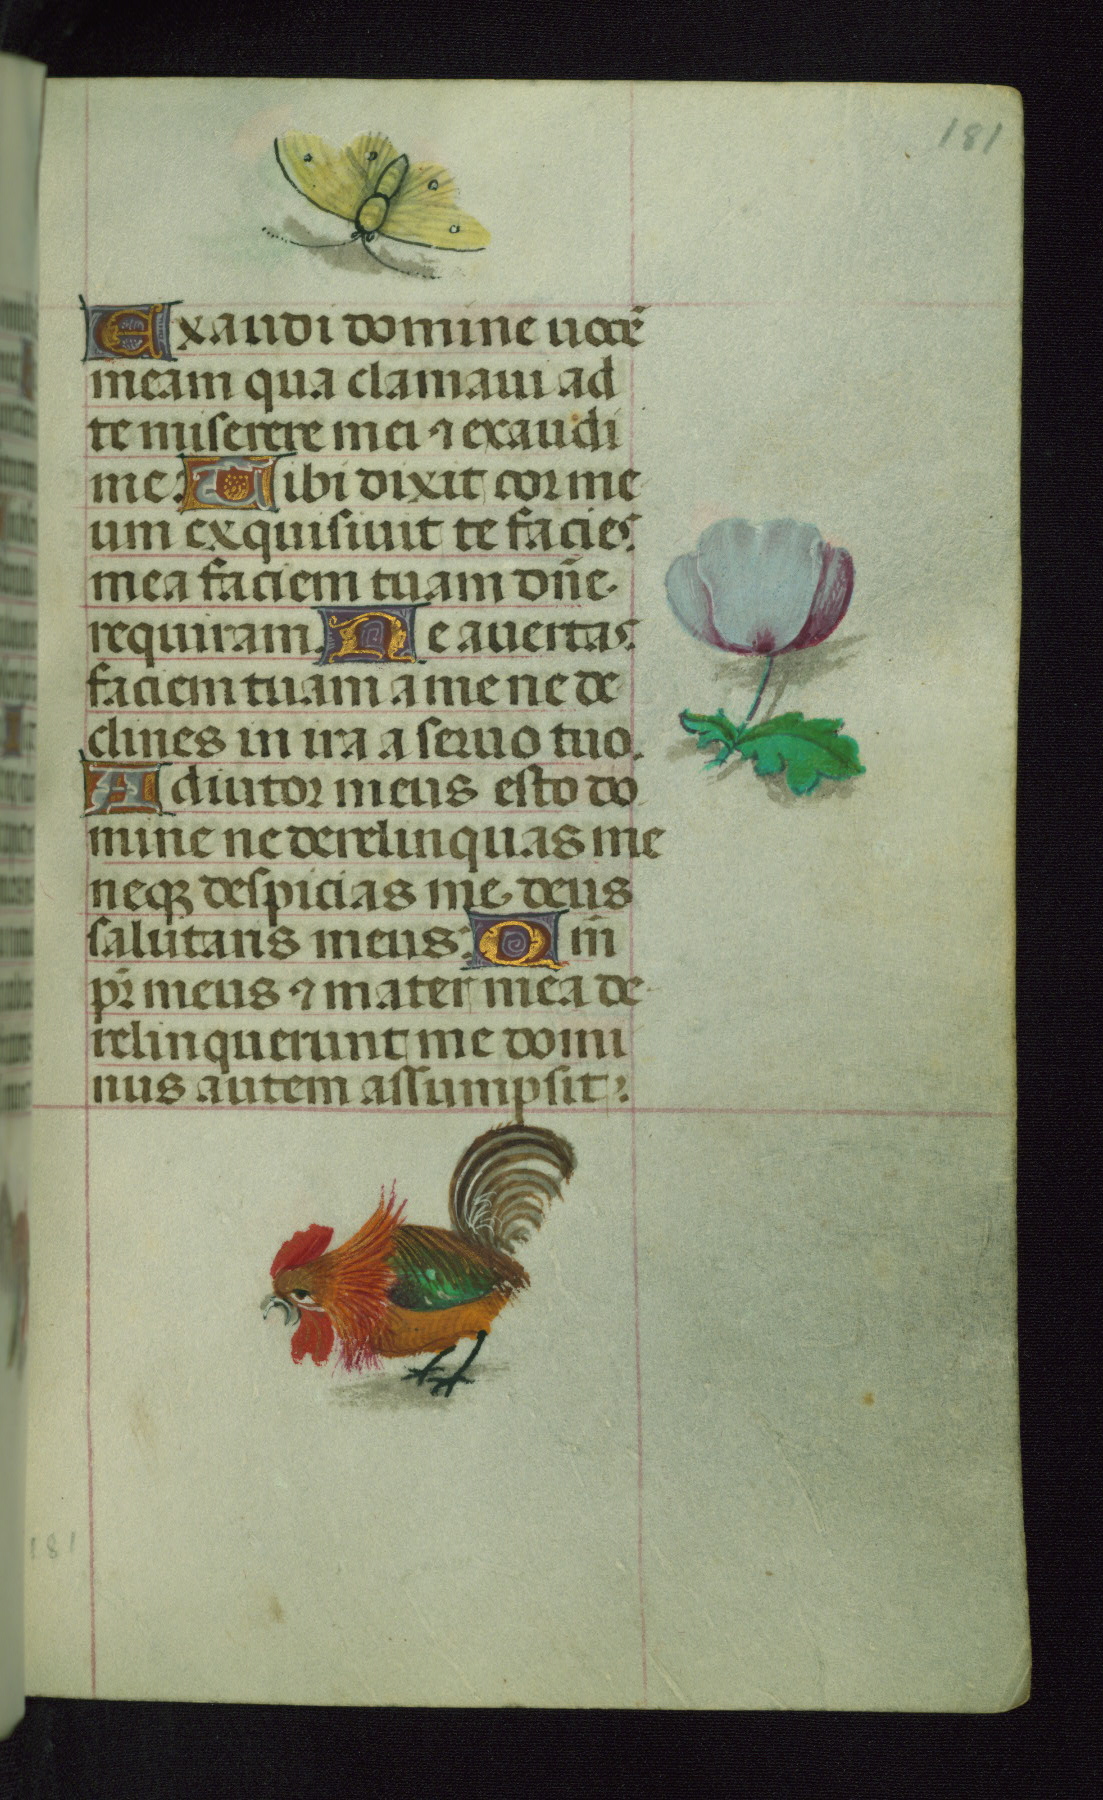 181
Exaudi domine uocē
meam qua clamaui ad
te miserere mei ⁊ exaudi
me. Tibi dixit cor me
um exquisiuit te facies
mea faciem tuam dn̄e
requiram. Ne auertas
faciem tuam a me ne de
clines in ira a seruo tuo.
Adiutor meus esto do
mine ne derelinquas me
neqꝫ despicias me deus
salutaris meus. Qm̄
pr̄ meus ⁊ mater mea de
relinquerunt me domi
nus autem assumpsit
181